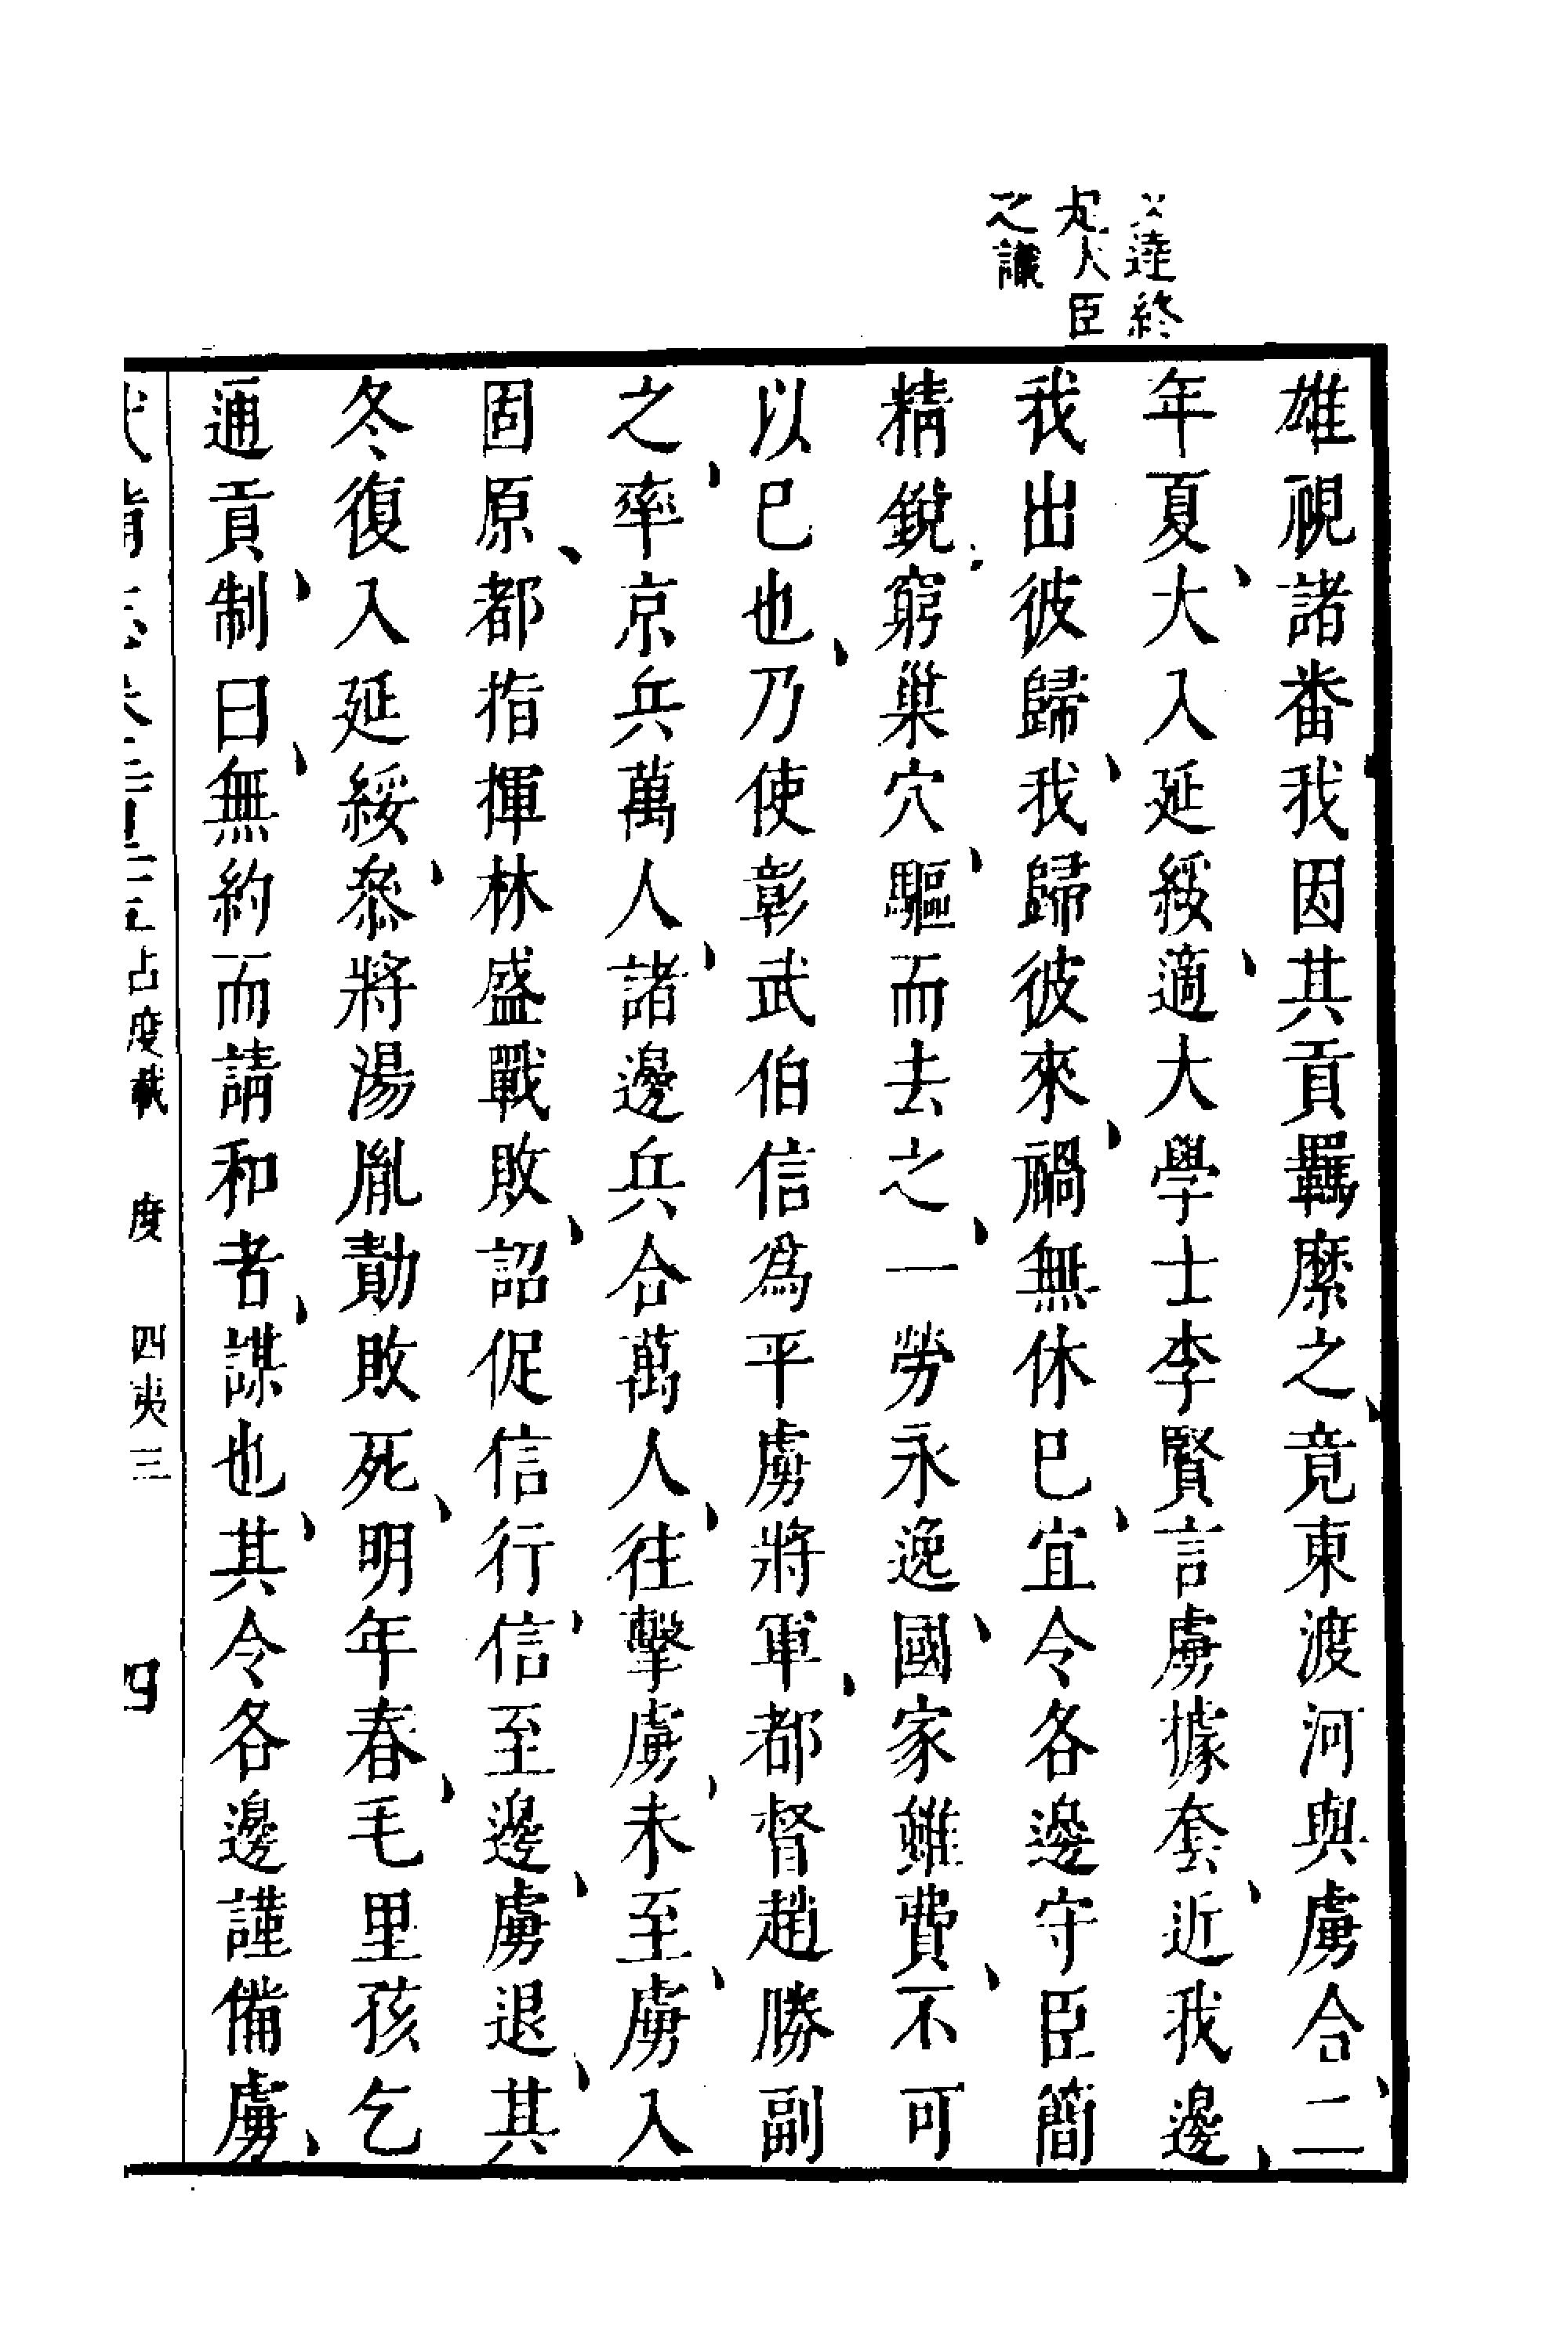 達終
是大臣
之議
雄視諸番我因其貢羈縻之竟東渡河與虜合二
年夏大入延綏適大學士李賢言虜據套近我邊
我出彼歸我歸彼來禍無休巳宜令各邊守臣簡
精銳窮巢穴驅而去之一勞永逸國家雖費不可
以巳也乃使彰武伯信爲平虜將軍都督趙勝副
之率京兵萬人諸邊兵合萬人往擊虜未至虜入
固原都指揮林盛戰敗詔促信行信至邊虜退其
冬復入延綏叅將湯胤勣敗死明年春毛里孩乞
通貢制曰無約而請和者謀也其令各邊謹備虜
占度載 度 四夷三 四